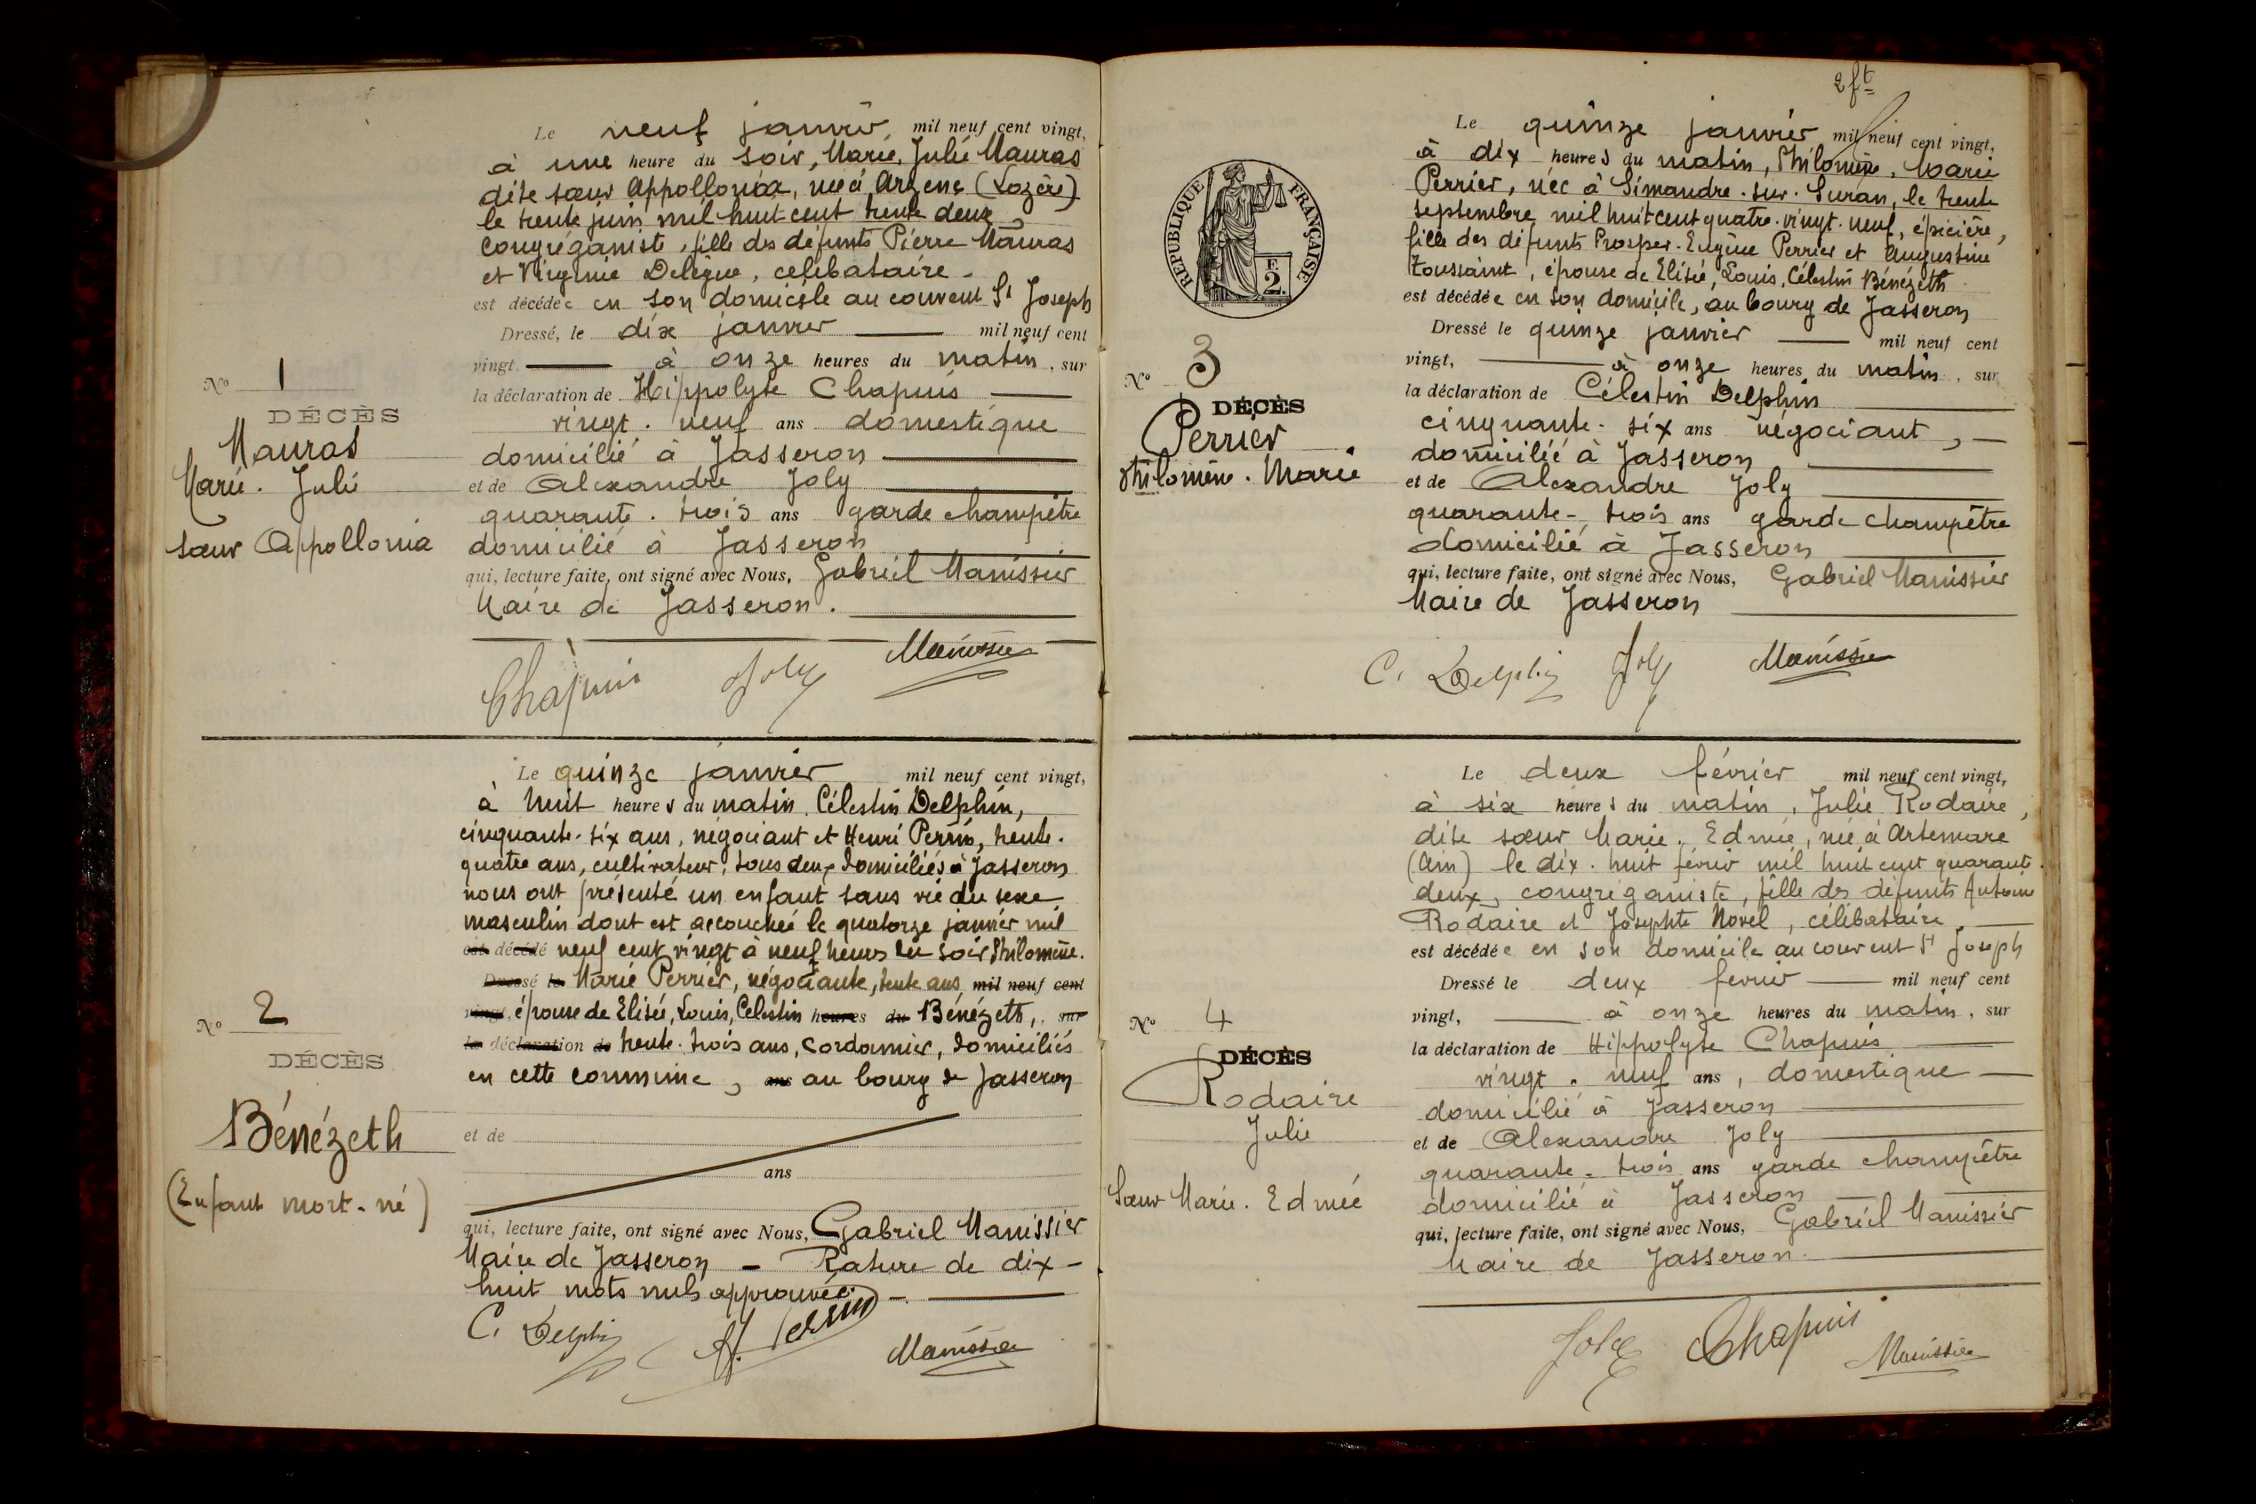 Le neuf janvier mil neuf cent vingt,
à une heure du soir, Marie, Julie Mauras
dite sœur Appollonia, née à Arzenc (Lozère)
le trente juin mil huit cent trente deux,
congréganiste, fille des défunts Pierre Mauras
et Virginie Delègue, célibataire -
est décédée en son domicile au couvent St Joseph
Dressé, le dix janvier mil neuf cent
vingt à onze heures du matin, sur
la déclaration de Hippolyte Chapuis
vingt-neuf ans domestique
domicilié à Jasseron
et de Alexandre Joly
quarante-trois ans garde champêtre
domicilié à Jasseron
qui, lecture faite, ont signé avec Nous, Gabriel Manissier
Maire de Jasseron.
Chapuis Joly Manissier
No 1
DÉCÈS
Mauras
Marie-Julie
sœur Appollonia
Le quinze janvier mil neuf cent vingt,
à huit heures du matin, Célestin Delphin,
cinquante-six ans, négociant et Henri Perrin, trente-
quatre ans, cultivateur, tous deux domiciliés à Jasseron
nous ont présenté un enfant sans vie du sexe
masculin dont est accouchée le quatorze janvier mil
est décédé neuf cent vingt à neuf heures du soir Philomène-
Dressé le Marie Perrier, négociante, trente ans mil neuf cent
vingt, épouse de Elisée, Louis, Célestin heures du Bénézeth, sur
la déclaration de trente-trois ans, cordonnier, domiciliés
en cette commune, ans au bourg de Jasseron
et de
ans
qui, lecture faite, ont signé avec Nous, Gabriel Manissier
Maire de Jasseron - Rature de dix-
huit mots nuls approuvée. -
C. Delphin H. Perrin Manissier
No 2
DÉCÈS
Bénézeth
(Enfant mort-né)
2 ft
RÉPUBLIQUE FRANÇAISE
F.
2.
Le quinze janvier mil neuf cent vingt,
à dix heures du matin, Philomène, Marie
Perrier, née à Simandre-sur-Suran, le trente
septembre mil huit cent quatre-vingt-neuf, épicière,
fille des défunts Prosper-Eugène Perrier et Augustine
Toussaint, épouse de Elisée, Louis, Célestin Bénézeth
est décédée en son domicile, au bourg de Jasseron
Dressé le quinze janvier mil neuf cent
vingt, à onze heures du matin, sur
la déclaration de Célestin Delphin
cinquante-six ans négociant,
domicilié à Jasseron
et de Alexandre Joly
quarante-trois ans garde champêtre
domicilié à Jasseron
qui, lecture faite, ont signé avec Nous, Gabriel Manissier
Maire de Jasseron
C. Delphin Joly Manissier
No 3
DÉCÈS
Perrier
Philomène-Marie
Le deux février mil neuf cent vingt,
à six heures du matin, Julie Rodaire,
dite sœur Marie-Edmée, née à Artemare
(Ain) le dix-huit février mil huit cent quarante-
deux, congréganiste, fille des défunts Antoine
Rodaire et Josephte Novel, célibataire,
est décédée en son domicile au couvent St Joseph
Dressé le deux février mil neuf cent
vingt, à onze heures du matin, sur
la déclaration de Hippolyte Chapuis
vingt-neuf ans, domestique
domicilié à Jasseron
et de Alexandre Joly
quarante-trois ans garde champêtre
domicilié à Jasseron
qui, lecture faite, ont signé avec Nous, Gabriel Manissier
Maire de Jasseron.
Joly Chapuis Manissier
No 4
DÉCÈS
Rodaire
Julie
Sœur Marie-Edmée